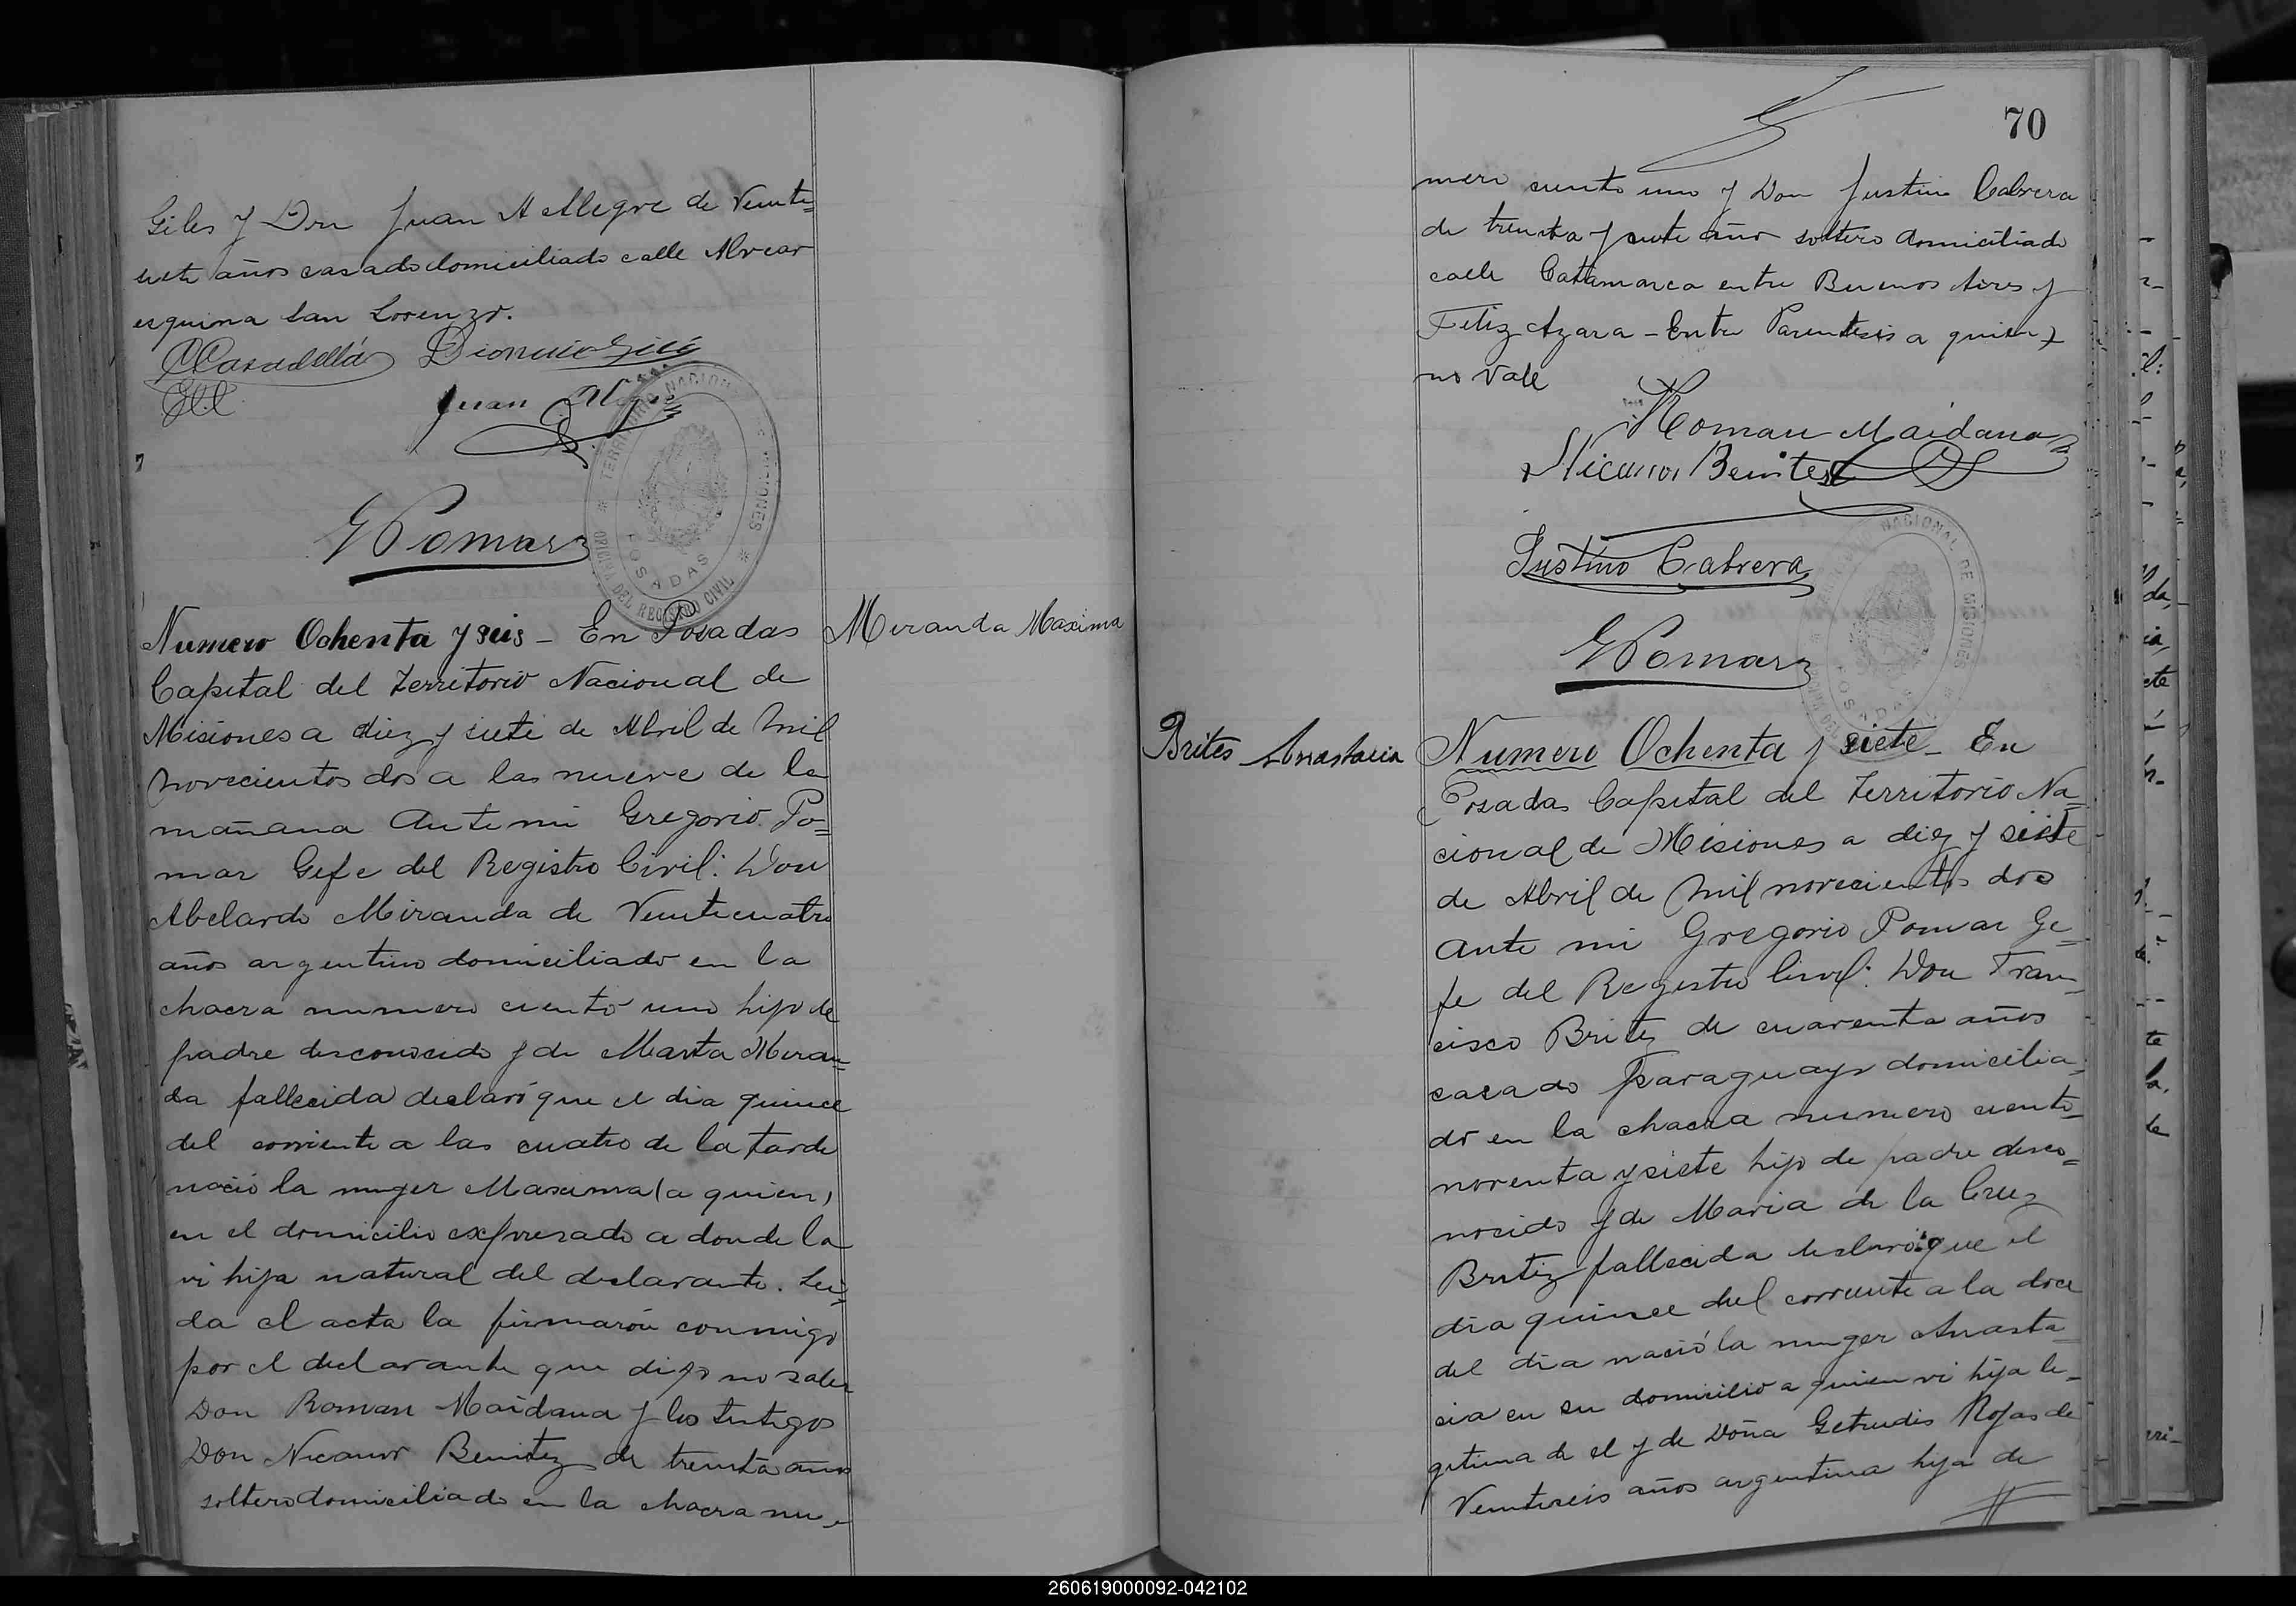 Giles y Don Juan A Allegre de Veinte=
siete años casado domiciliado calle Alvear
esquina San Lorenzo.
CCasadellá Dionicio Gili
Juan
GPomar
TERRITORIO NACIONAL DE MISIONES
OFICINA DEL REGISTRO CIVIL
POSADAS
Numero Ochenta y seis - En Posadas
Capital del Territorio Nacional de
Misiones a diez y siete de Abril de mil
novecientos dos a las nueve de la
mañana Ante mi Gregorio Po=
mar Gefe del Registro Civil: Don
Abelardo Miranda de Veinticuatro
años argentino domiciliado en la
chacra numero ciento uno hijo de
padre desconocido y de Marta Miran=
da fallecida declaró que el dia quince
del corriente a las cuatro de la tarde
nació la muger Maxima (a quien)
en el domicilio expresado a donde la
vi hija natural del declarante. Lei=
da el acta la firmarón conmigo
por el declarante que dijo no saber
Don Roman Maidana y los testigos
Don Nicanor Benitez de treinta años
soltero domiciliado en la chacra nu-
Miranda Maxima
70
mero ciento uno y Don Justino Cabrera
de treinta y siete años soltero domiciliado
calle Catamarca entre Buenos Aires y
Feliz Azara - Entre Parentesis a quien
no vale
Roman Maidana
Nicanor Benites
Justino Cabrera
GPomar
TERRITORIO NACIONAL DE MISIONES
POSADAS
Brites Anastacia
Numero Ochenta y siete - En
Posadas Capital del Territorio Na=
cional de Misiones a diez y siete
de Abril de mil novecientos dos
ante mi Gregorio Pomar Ge=
fe del Registro Civil: Don Fran=
cisco Britez de cuarenta años
casado paraguayo domicilia=
do en la chacra numero ciento
noventa y siete hijo de padre desco=
nocido y de Maria de la Cruz
Britez fallecida declaró que el
dia quince del corriente a la doce
del dia nació la muger Anasta=
cia en su domicilio a quien vi hija le=
gitima de el y de Doña Getrudis Rojas de
Veintiseis años argentina hija de
260619000092-042102